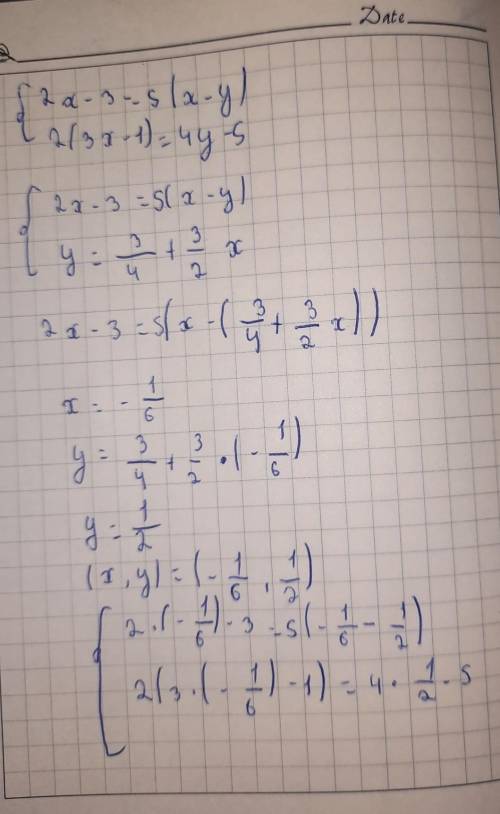 Date
2x - 3 = 5(x - y)
2(3x - 1) = 4y - 5
2x - 3 = 5(x - y)
y = 3/4 + 3/2 x
2x - 3 = 5(x - (3/4 + 3/2 x))
x = - 1/6
y = 3/4 + 3/2 · (- 1/6)
y = 1/2
(x, y) = (- 1/6, 1/2)
2 · (- 1/6) - 3 = 5(- 1/6 - 1/2)
2(3 · (- 1/6) - 1) = 4 · 1/2 - 5